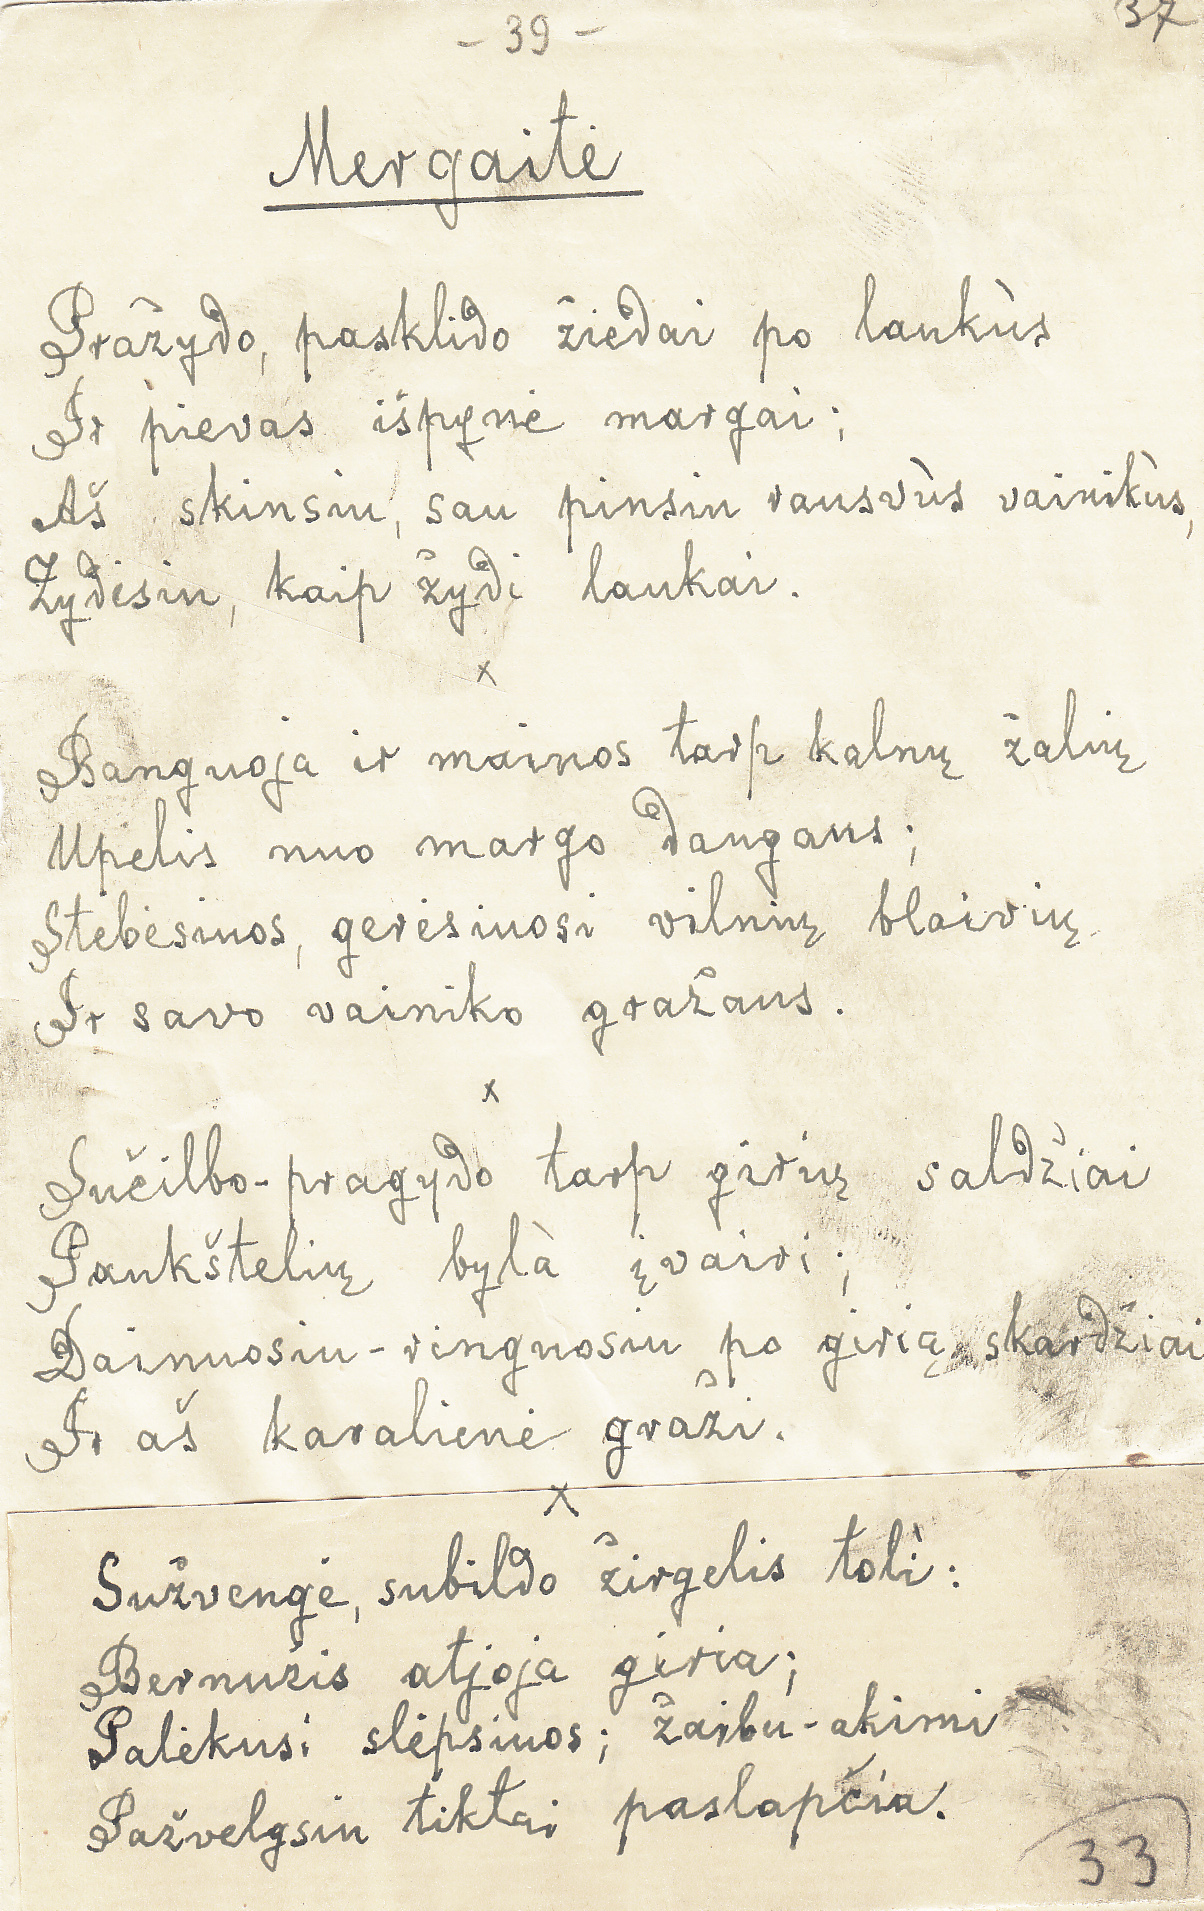 - 39 -
37
Mergaitė
Pražydo, pasklido žiedai po laukùs
Ir pievas išpynė margai;
Aš skinsiu, sau pinsiu rausvùs vainikùs,
Žydėsiu, kaip žydi laukai.
x
Banguoja ir mainos tarp kalnų žalių
Upelis nuo margo dangaus;
Stebėsiuos, gerėsiuosi vilnių blaivių
Ir savo vainiko gražaus.
x
Sučilbo-pragydo tarp girių saldžiai
Paukštelių bylà įvairi;
Dainuosiu-ringuosiu po girią skardžiai
Ir aš karalienė graži.
x
Sužvengė, subildo žirgelis tolì:
Bernužis atjoja giria;
Palėkusi slėpsiuos; žaibu-akimi
Pažvelgsiu tiktai paslapčia.
33